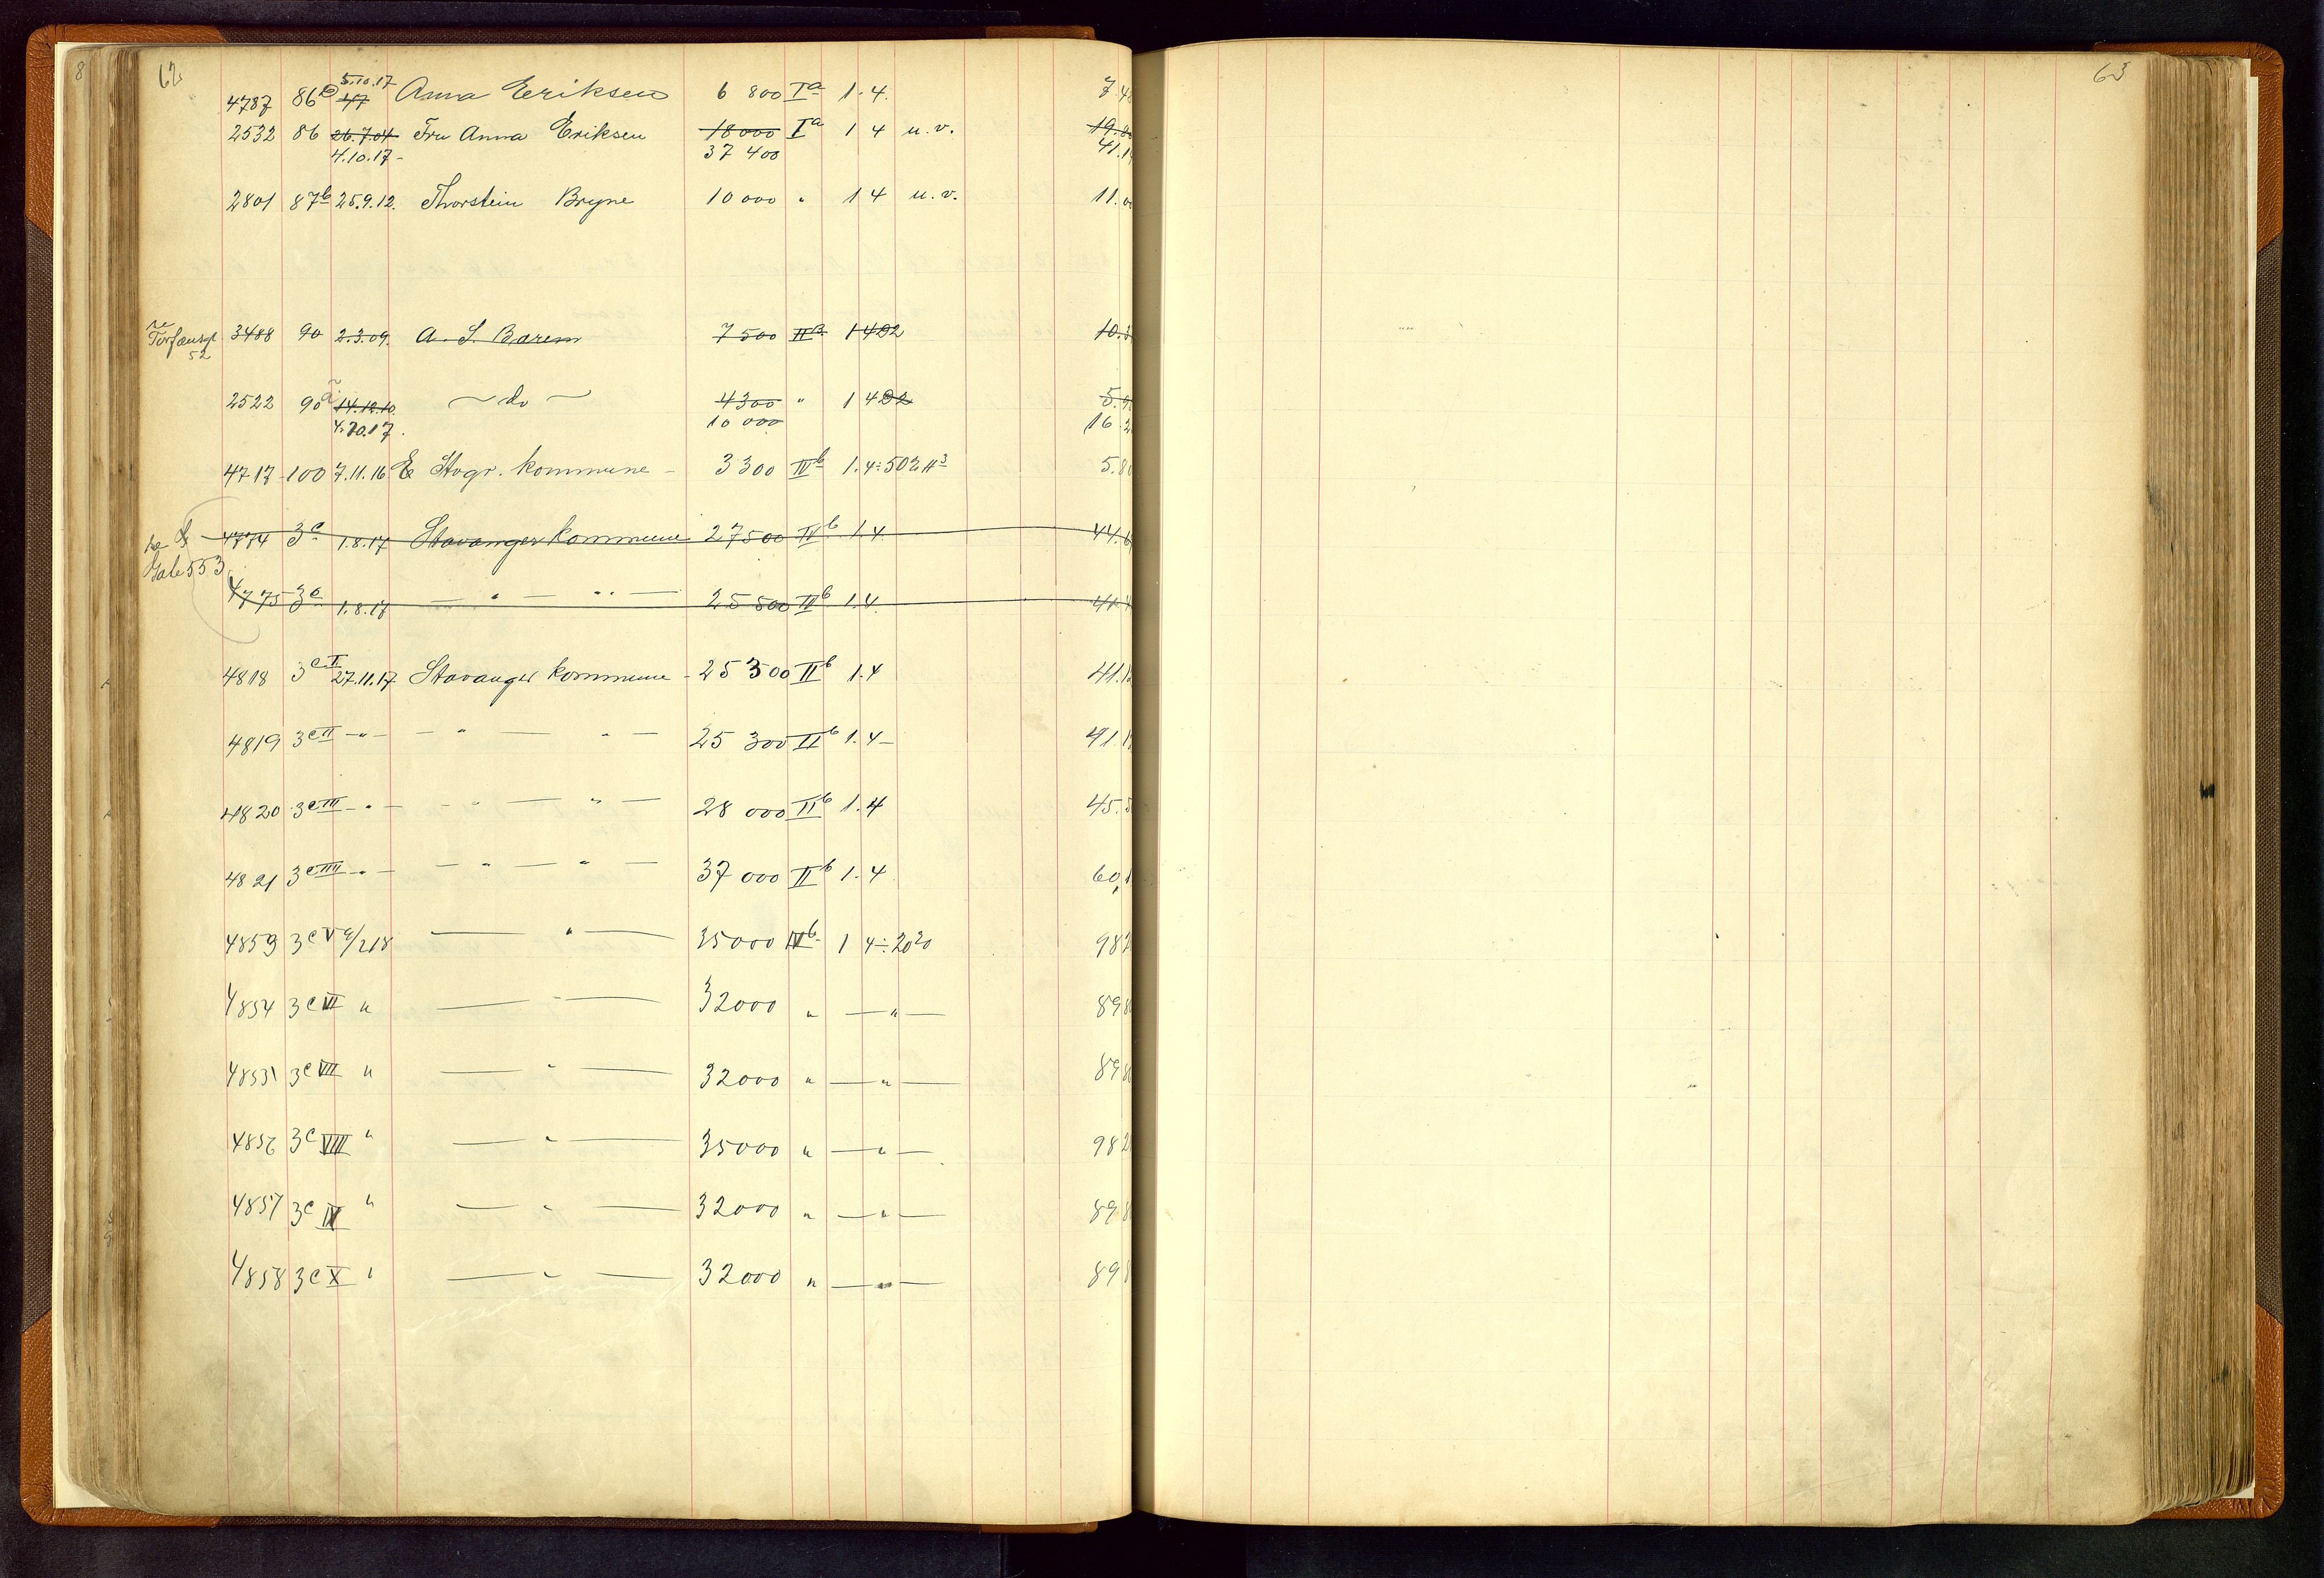 62
5.10.17
4787 86b 47 Anna Eriksen 6 800 Ia 1.4. 7.4
2532 86 26.7.04 Fru Anna Eriksen 18000 Ia 1 4 u.v. 19.8
4.10.17- 37 400 41.1
2801 87b 25.9.12. Thorstein Bryne 10 000 " 1 4 u.v. 11.0
3488 90 2.3.09. A. S. Barem 7500 IIB 1402 10.3
52
2522 90a 14.12.10. — do — 4300 " 1402 5.9
4.10.17. 10 000 16.2
4717 100 7.11.16 E Stvgr. kommune - 3300 IVb 1.4 ÷ 502 5.8
4774 3c 1.8.17 Stavanger kommune 27500 IIb 1.4 44.6
Gate 553
4775 3c 1.8.17 — " — " — 25 500 IIb 1.4. 41.4
4818 3cI 27.11.17 Stavanger kommune - 25 300 IIb 1.4 41.1
4819 3cII —"— — " — " — 25 300 IIb 1.4— 41.1
4820 3cIII —"— — " — " — 28 000 IIb 1.4 45.5
4821 3cIIII —"— — " — " — 37 000 IIb 1.4 60,1
4859 3cV 9/218 — " — 35000 IVb 1 4÷2020 982
4854 3cVI " — " — 32000 " —"— 898
4855 3cVII " — " — 32000 " —"— 898
4856 3cVIII " — " — 35000 " —"— 982
4857 3cIX " — " — 32000 " —"— 898
4858 3cX " — " — 32000 " —"— 898
63